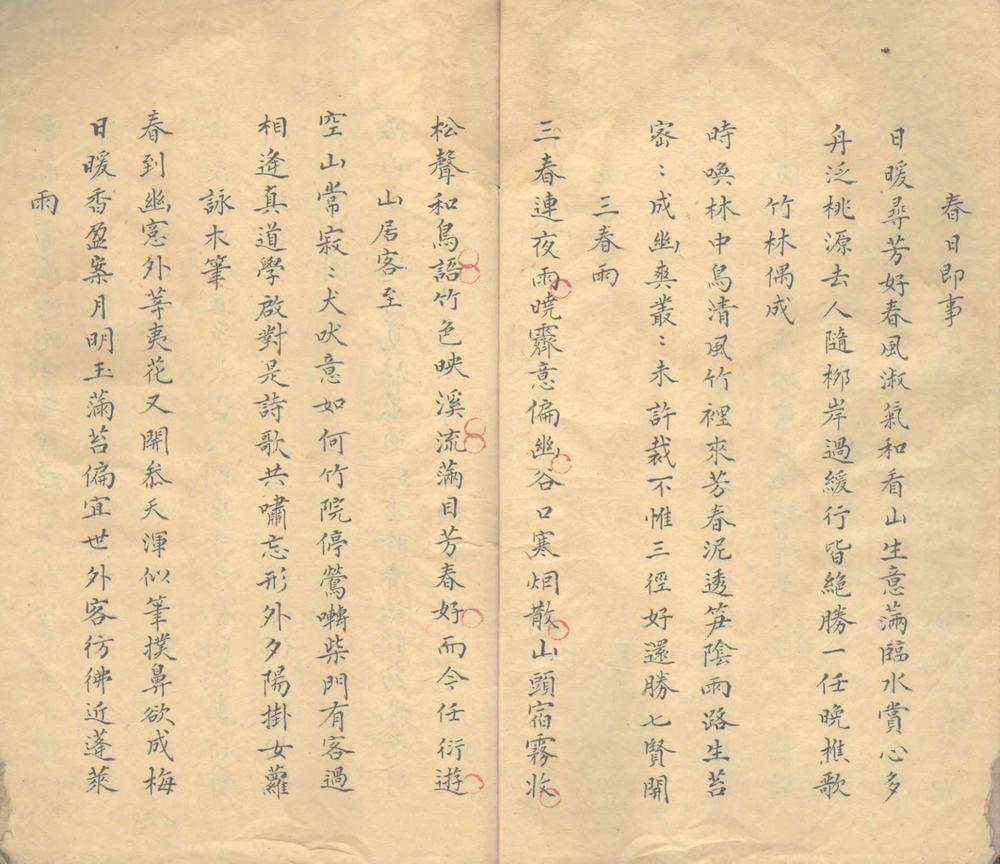 春日即事
日暖尋芳好春風淑氣和看山生意滿臨水賞心多
舟泛桃源去人隨柳岸過緩行皆絕勝一任晚樵歌
竹林偶成
時喚林中鳥清風竹裡來芳春泥透笋陰雨路生苔
密〻成幽爽叢〻未許裁不惟三徑好還勝七賢開
三春雨
三春連夜雨曉霽意偏幽谷口寒烟散山頭宿霧收
松聲和鳥語竹色映溪流滿目芳春好而今任衍遊
山居客至
空山常寂〻犬吠意如何竹院停鶯囀柴門有客過
相逢真道學啟對是詩歌共嘯忘形外夕陽掛女蘿
詠木筆
春到幽窓外莘夷花又開叅天渾似筆撲鼻欲成梅
日暖香盈案月明玉滿苔偏宜世外客彷彿近蓬萊
雨